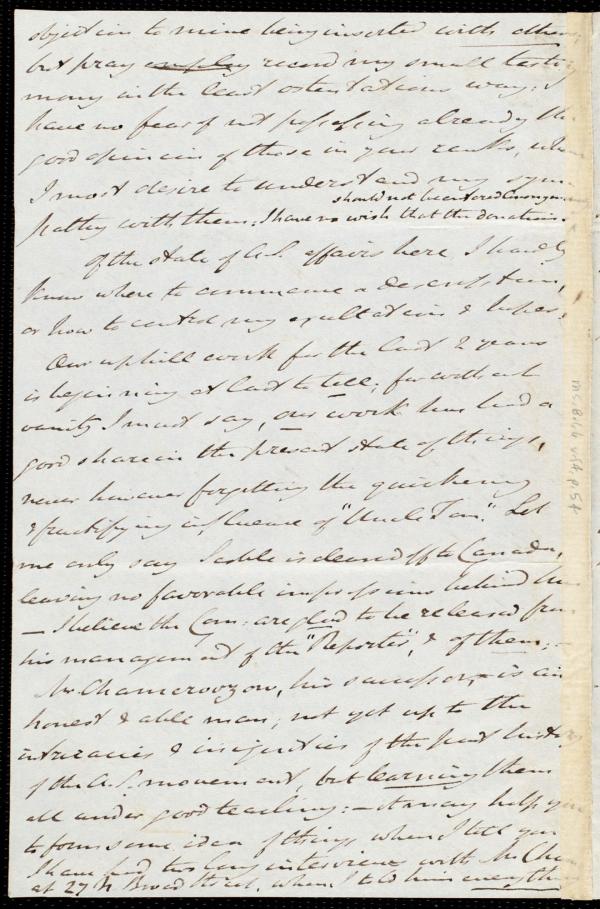 objection to mine being inserted with others,
but pray record my small testi-
mony in the least ostentatious way: I
have no fear of not possessing already the
good opinion of those in your ranks, whom
I most desire to understand my sym-
should not be entered anonymous
pathy with them; I have no wish that the donations
Of the state of A.S. affairs here I hardly
know where to commence a description,
or how to control my exultation & hopes.
Our uphill work for the last 2 years
is beginning at last to tell; for without
vanity I must say, our work has had a
good share in the present state of things,
never however forgetting the quickening
& fructifying influence of "Uncle Tom." Let
me only say Scoble is cleared off to Canada,
leaving no favorable impressions behind him
— I believe the Com: are glad to be released from
his management of the "Reporter", & of them; —
Mr. Chamerovzow, his successor, is an
honest & able man, not yet up to the
intricacies & iniquities of the past history
of the A.S. movement, but learning them
all under good teaching: — It may help you
to form some idea of things when I tell you
I have had two long interviews with Mr. Cham
at 27 N Broad Street, when I told him everything
Ms.B.1.6 v.4, p.54